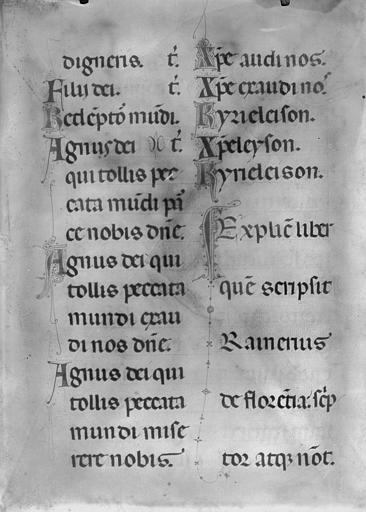 digneris. t̃.
Filii dei. t̃.
Redẽptor̃ mũdi.
Agnus dei t̃.
qui tollis pec
cata mũdi p̃
ce nobis dñe.
Agnus dei qui
tollis peccata
mundi exau
di nos dñe.
Agnus dei qui
tollis peccata
mundi mise
rere nobis.
Xp̃e audi nos.
Xp̃e exaudi nos.
Kyrieleison.
Xpeleyson.
Kyrieleison.
Explic̃ liber
quẽ scripsit
Rainerius
de florẽtia. sc̃p
tor atqꝫ nõt.